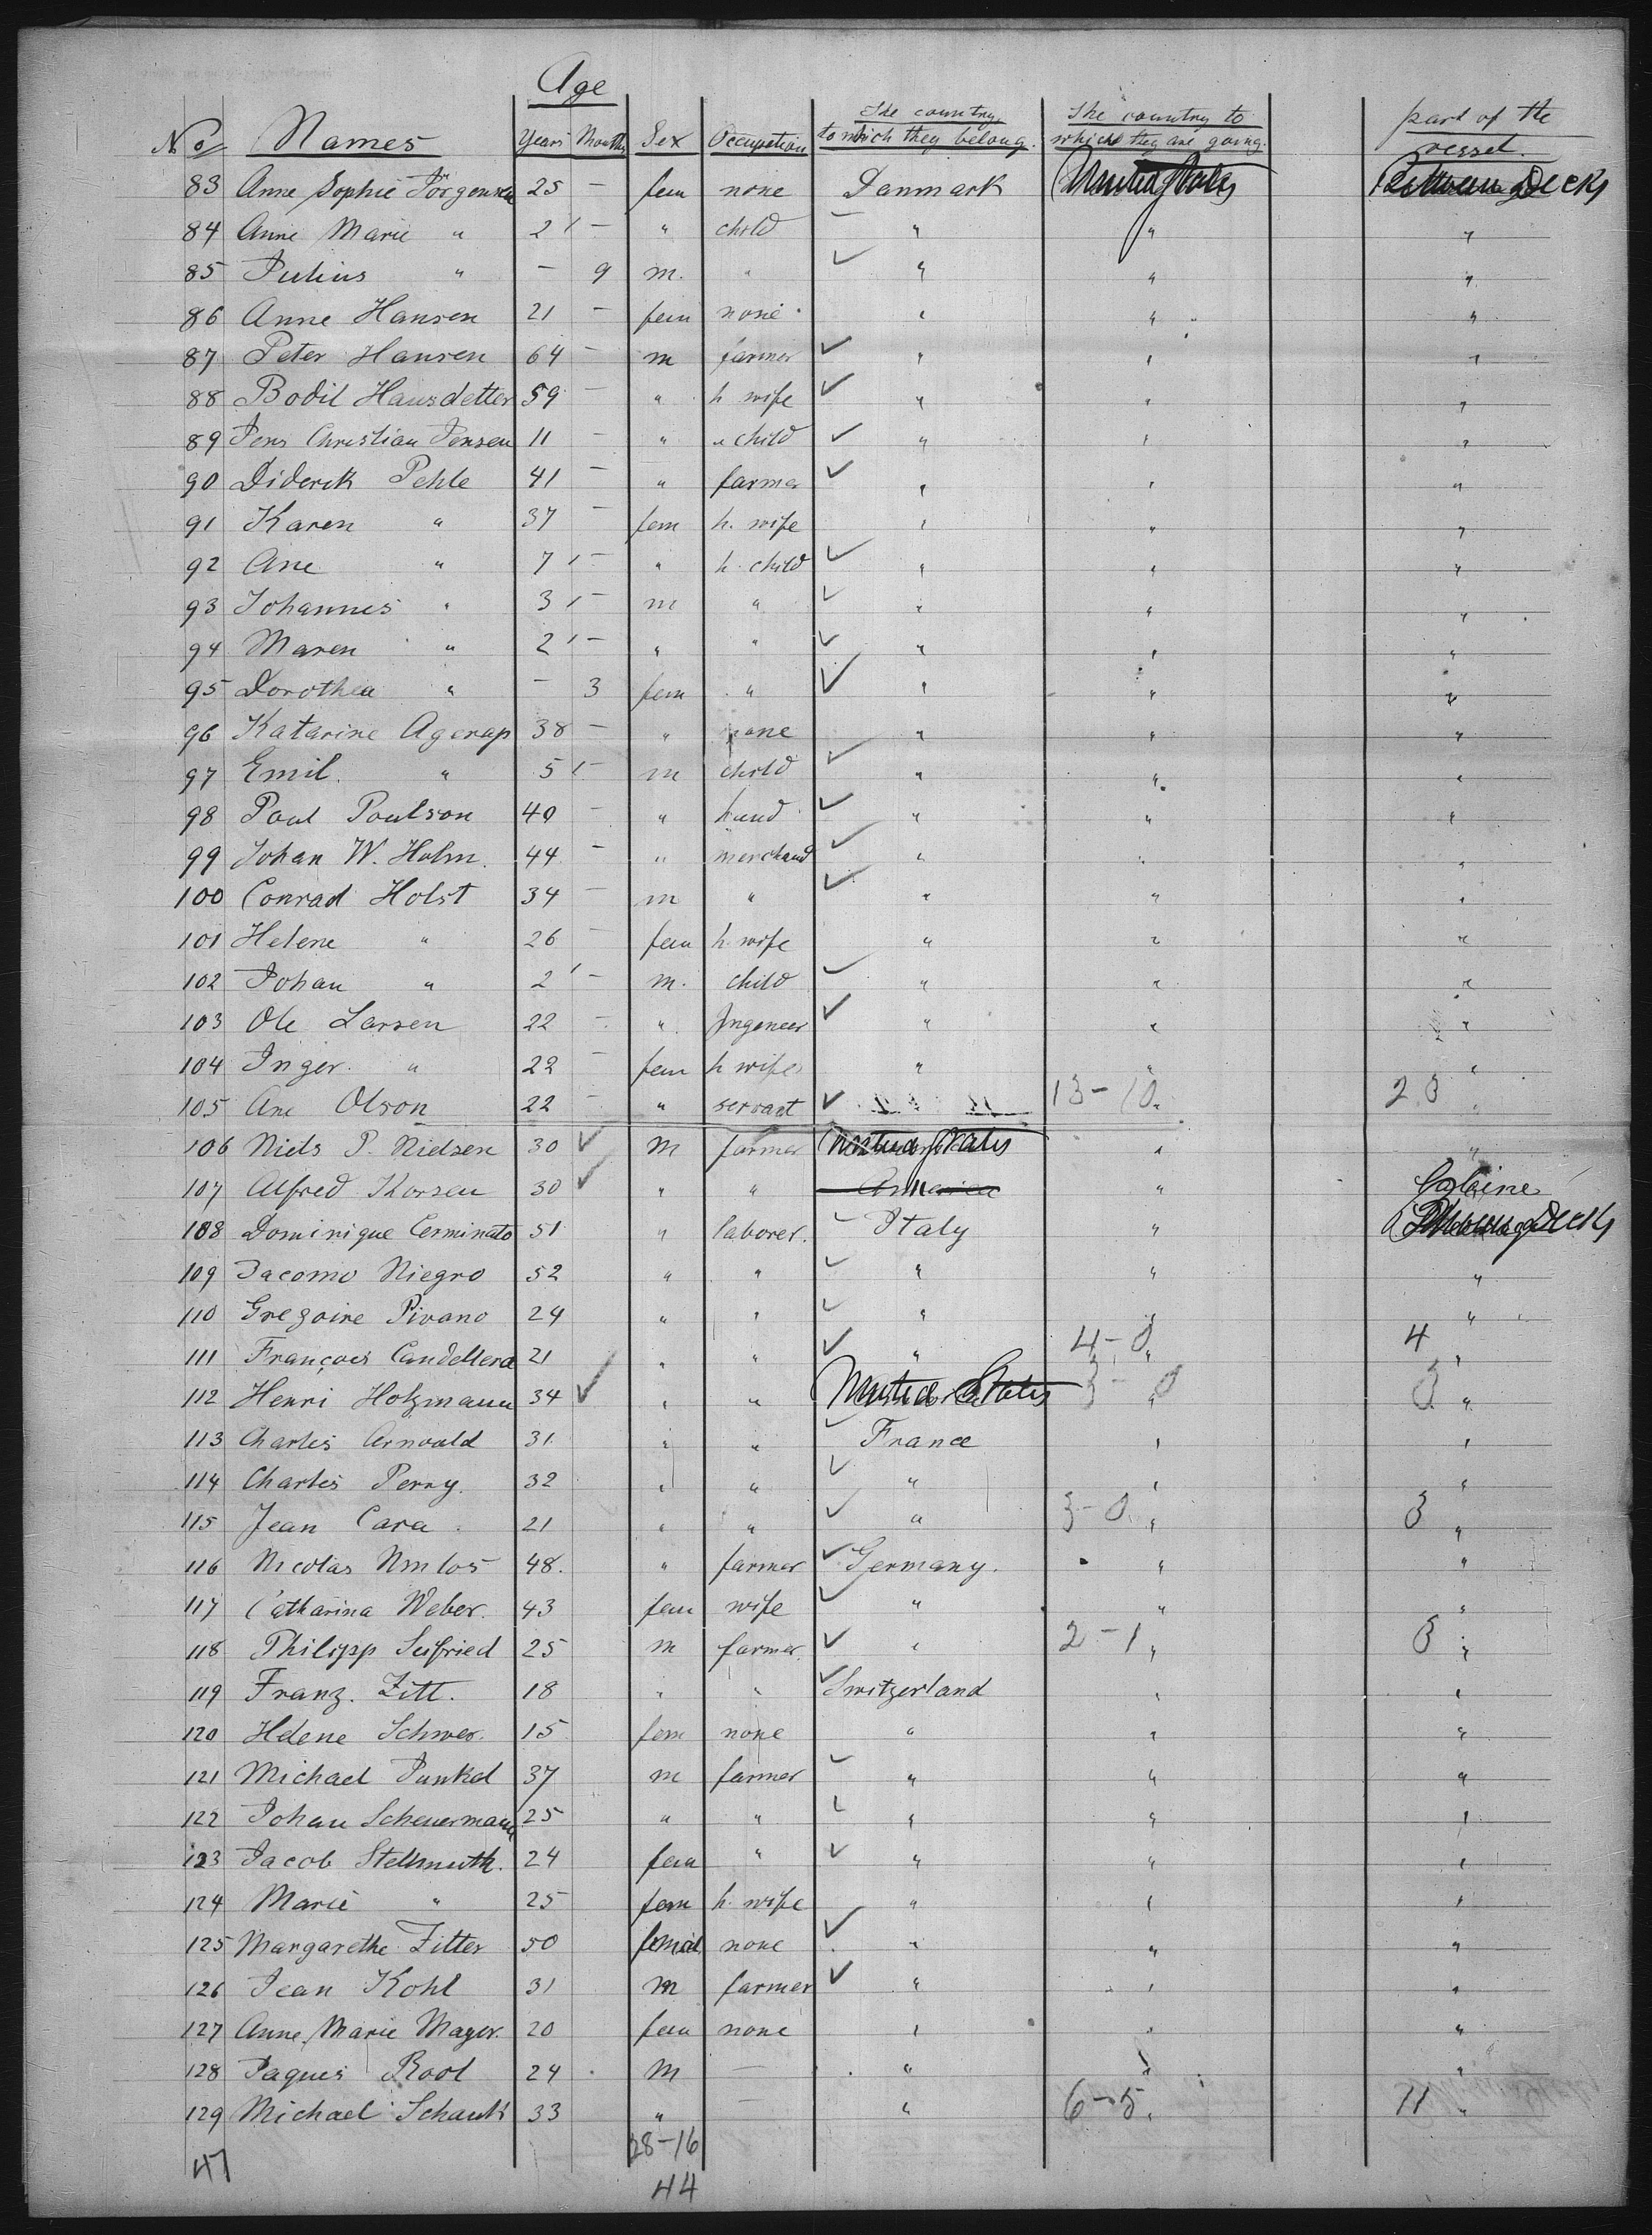 Age
No Names Years Months Sex Occupation The country to which they belong. The country to which they are going. part of the vessel.
83 Anne Sophie Jörgensen 25 – fem none Danmark United States Between Decks
84 Anne Marie " 2 – " child " " "
85 Julius " – 9 m. " " " "
86 Anne Hansen 21 – fem none " " "
87 Peter Hansen 64 – m farmer " " "
88 Bodil Hansdetter 59 – " h wife " " "
89 Jens Christian Jensen 11 – " " child " " "
90 Diderik Pehle 41 – " farmer " " "
91 Karen " 37 – fem h. wife " " "
92 Ane " 7 – " h. child " " "
93 Johannes " 3 – m " " " "
94 Maren " 2 – " " " " "
95 Dorothea " – 3 fem " " " "
96 Katarine Agerap 38 – " none " " "
97 Emil " 5 – m child " " "
98 Poul Poulson 40 – " " " "
99 Johan W. Holm. 44 – " merchand " " "
100 Conrad Holst 34 – m " " " "
101 Helene " 26 – fem h. wife " " "
102 Johan " 2 – m. child " " "
103 Ole Larsen 22 – " Ingeneer " " "
104 Inger " 22 – fem h wife " " "
105 Ane Olson 22 – " servant " 13 – 10 " 23 "
106 Niels P. Nielsen 30 m farmer United States " "
107 Alfred Korsen 30 " " " Cabine
108 Dominique Cerminato 51 " laborer. Italy " Between Decks
109 Jacomo Niegro 52 " " " " "
110 Gregoire Pivano 24 " " " " "
111 François Candellera 21 " " " 4 – 0 " 4 "
112 Henri Holzmann 34 " " United States 3 – 0 " 3 "
113 Charles Arnould 31 " " France " "
114 Charles Perny 32 " " " " "
115 Jean Cara 21 " " " 3 – 0 " 3 "
116 Nicolas 48. " farmer Germany. " "
117 Catharina Weber. 43 fem wife " " "
118 Philipp Seifried 25 m farmer " 2 – 1 " 3 "
119 Franz. Zitt. 18 " " Switzerland " "
120 Helene Schwer. 15 fem none " " "
121 Michael Punkel 37 m farmer " " "
122 Johan Scheuermann 25 " " " " "
123 Jacob Stellmuth. 24 fem " " " "
124 Marie " 25 fem h. wife " " "
125 Margarethe Zitter 50 femal none " " "
126 Jean Kohl 31 m farmer " " "
127 Anne Marie Mayer. 20 fem none " " "
128 Jaques Root 24 m — " " "
129 Michael Schank 33 " — " 6 – 5 " 11 "
28 – 16
47
44